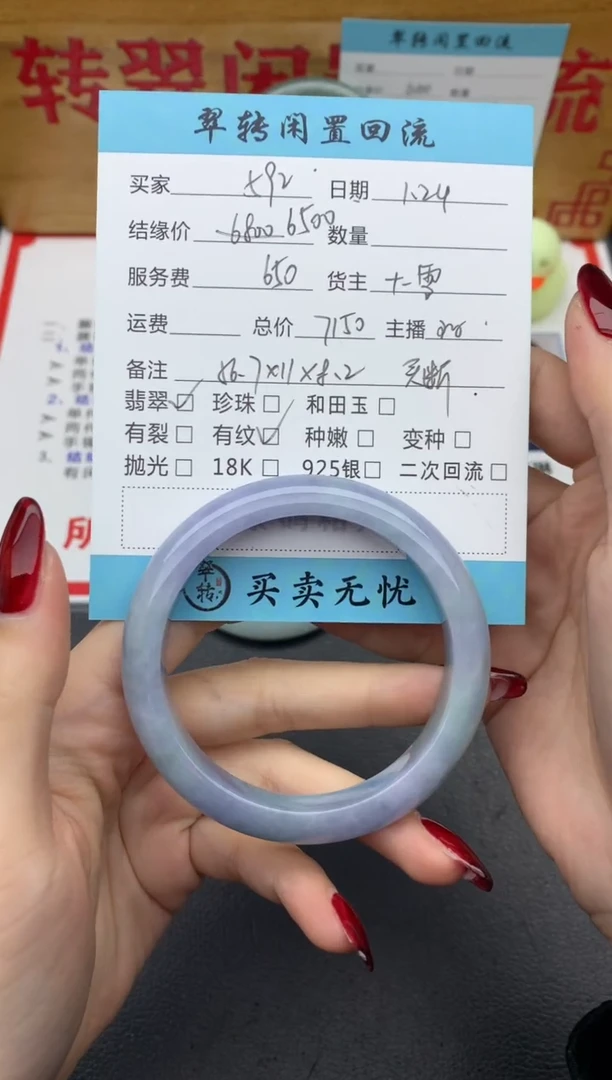 转翠闲
流
翠转闲置回流
翠转闲置回流
买家 592 日期 1.24
结缘价 6800 6500 数量
服务费 650 货主 十一雪
运费 总价 7150 主播
备注 56.7×11×8.2 买断
翡翠☑ 珍珠□ 和田玉□
有裂□ 有纹☑ 种嫩□ 变种□
抛光□ 18K□ 925银□ 二次回流□
翠转 买卖无忧
所